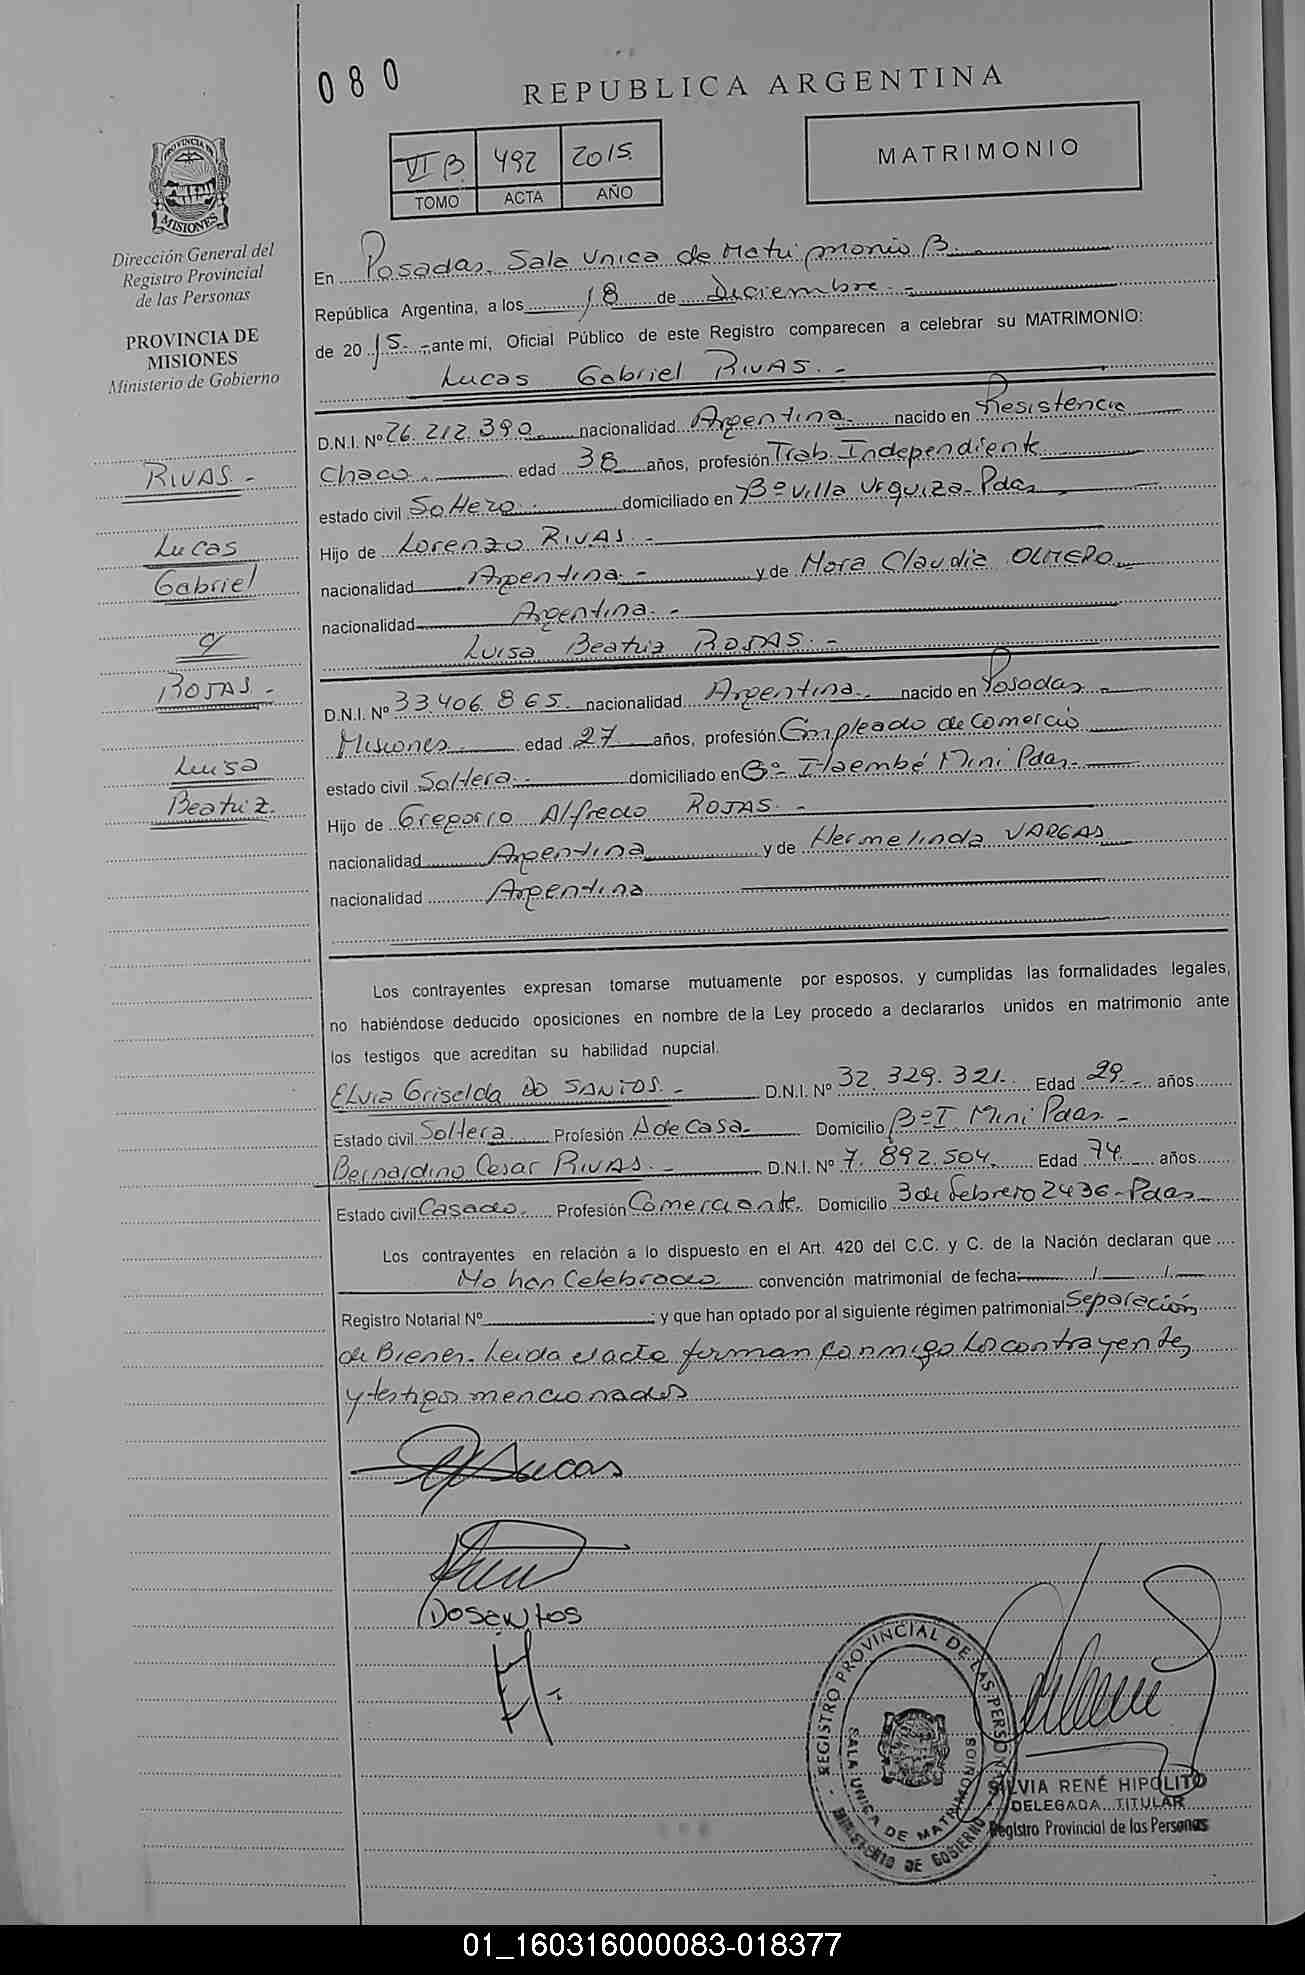 080
REPUBLICA ARGENTINA
VI B. 492 2015.
TOMO ACTA AÑO
MATRIMONIO
PROVINCIA DE
MISIONES
Dirección General del
Registro Provincial
de las Personas
PROVINCIA DE
MISIONES
Ministerio de Gobierno
RIVAS.-
Lucas
Gabriel
ROJAS.-
Luisa
Beatriz.
En Posadas, Sala Unica de Matrimonio B.
República Argentina, a los 18 de Diciembre.-
de 2015.-, ante mi, Oficial Público de este Registro comparecen a celebrar su MATRIMONIO:
Lucas Gabriel RIVAS.-
D.N.I. Nº 26.212.390. nacionalidad Argentina. nacido en Resistencia
Chaco. edad 38 años, profesión Trab. Independiente
estado civil Soltero. domiciliado en Bº Villa Urquiza-Pdas
Hijo de Lorenzo RIVAS.-
nacionalidad Argentina.- y de Nora Claudia OLMEDO
nacionalidad Argentina.-
Luisa Beatriz ROJAS.-
D.N.I. Nº 33.406.865. nacionalidad Argentina. nacido en Posadas
Misiones. edad 27 años, profesión Empleado de Comercio
estado civil Soltera. domiciliado en Bº Itaembé Mini Pdas.
Hijo de Gregorio Alfredo ROJAS.-
nacionalidad Argentina y de Hermelinda VARGAS
nacionalidad Argentina
Los contrayentes expresan tomarse mutuamente por esposos, y cumplidas las formalidades legales,
no habiéndose deducido oposiciones en nombre de la Ley procedo a declararlos unidos en matrimonio ante
los testigos que acreditan su habilidad nupcial.
Elvia Griselda DO SANTOS.- D.N.I. Nº 32.329.321. Edad 29.- años
Estado civil Soltera Profesión A de Casa. Domicilio Bº I Mini Pdas.-
Bernardino Cesar RIVAS.- D.N.I. Nº 7.892.504. Edad 74 años
Estado civil Casado. Profesión Comerciante. Domicilio 3 de febrero 2436-Pdas
Los contrayentes en relación a lo dispuesto en el Art. 420 del C.C. y C. de la Nación declaran que
No han Celebrado convención matrimonial de fecha: / /
Registro Notarial Nº ; y que han optado por al siguiente régimen patrimonial Separación
de Bienes. Leida el acta firman conmigo los contrayentes
y testigos mencionados
Lucas
Dosantos
REGISTRO PROVINCIAL DE LAS PERSONAS
SALA UNICA DE MATRIMONIOS
MINISTERIO DE GOBIERNO
SILVIA RENÉ HIPOLITO
DELEGADA TITULAR
Registro Provincial de las Personas
01_160316000083-018377